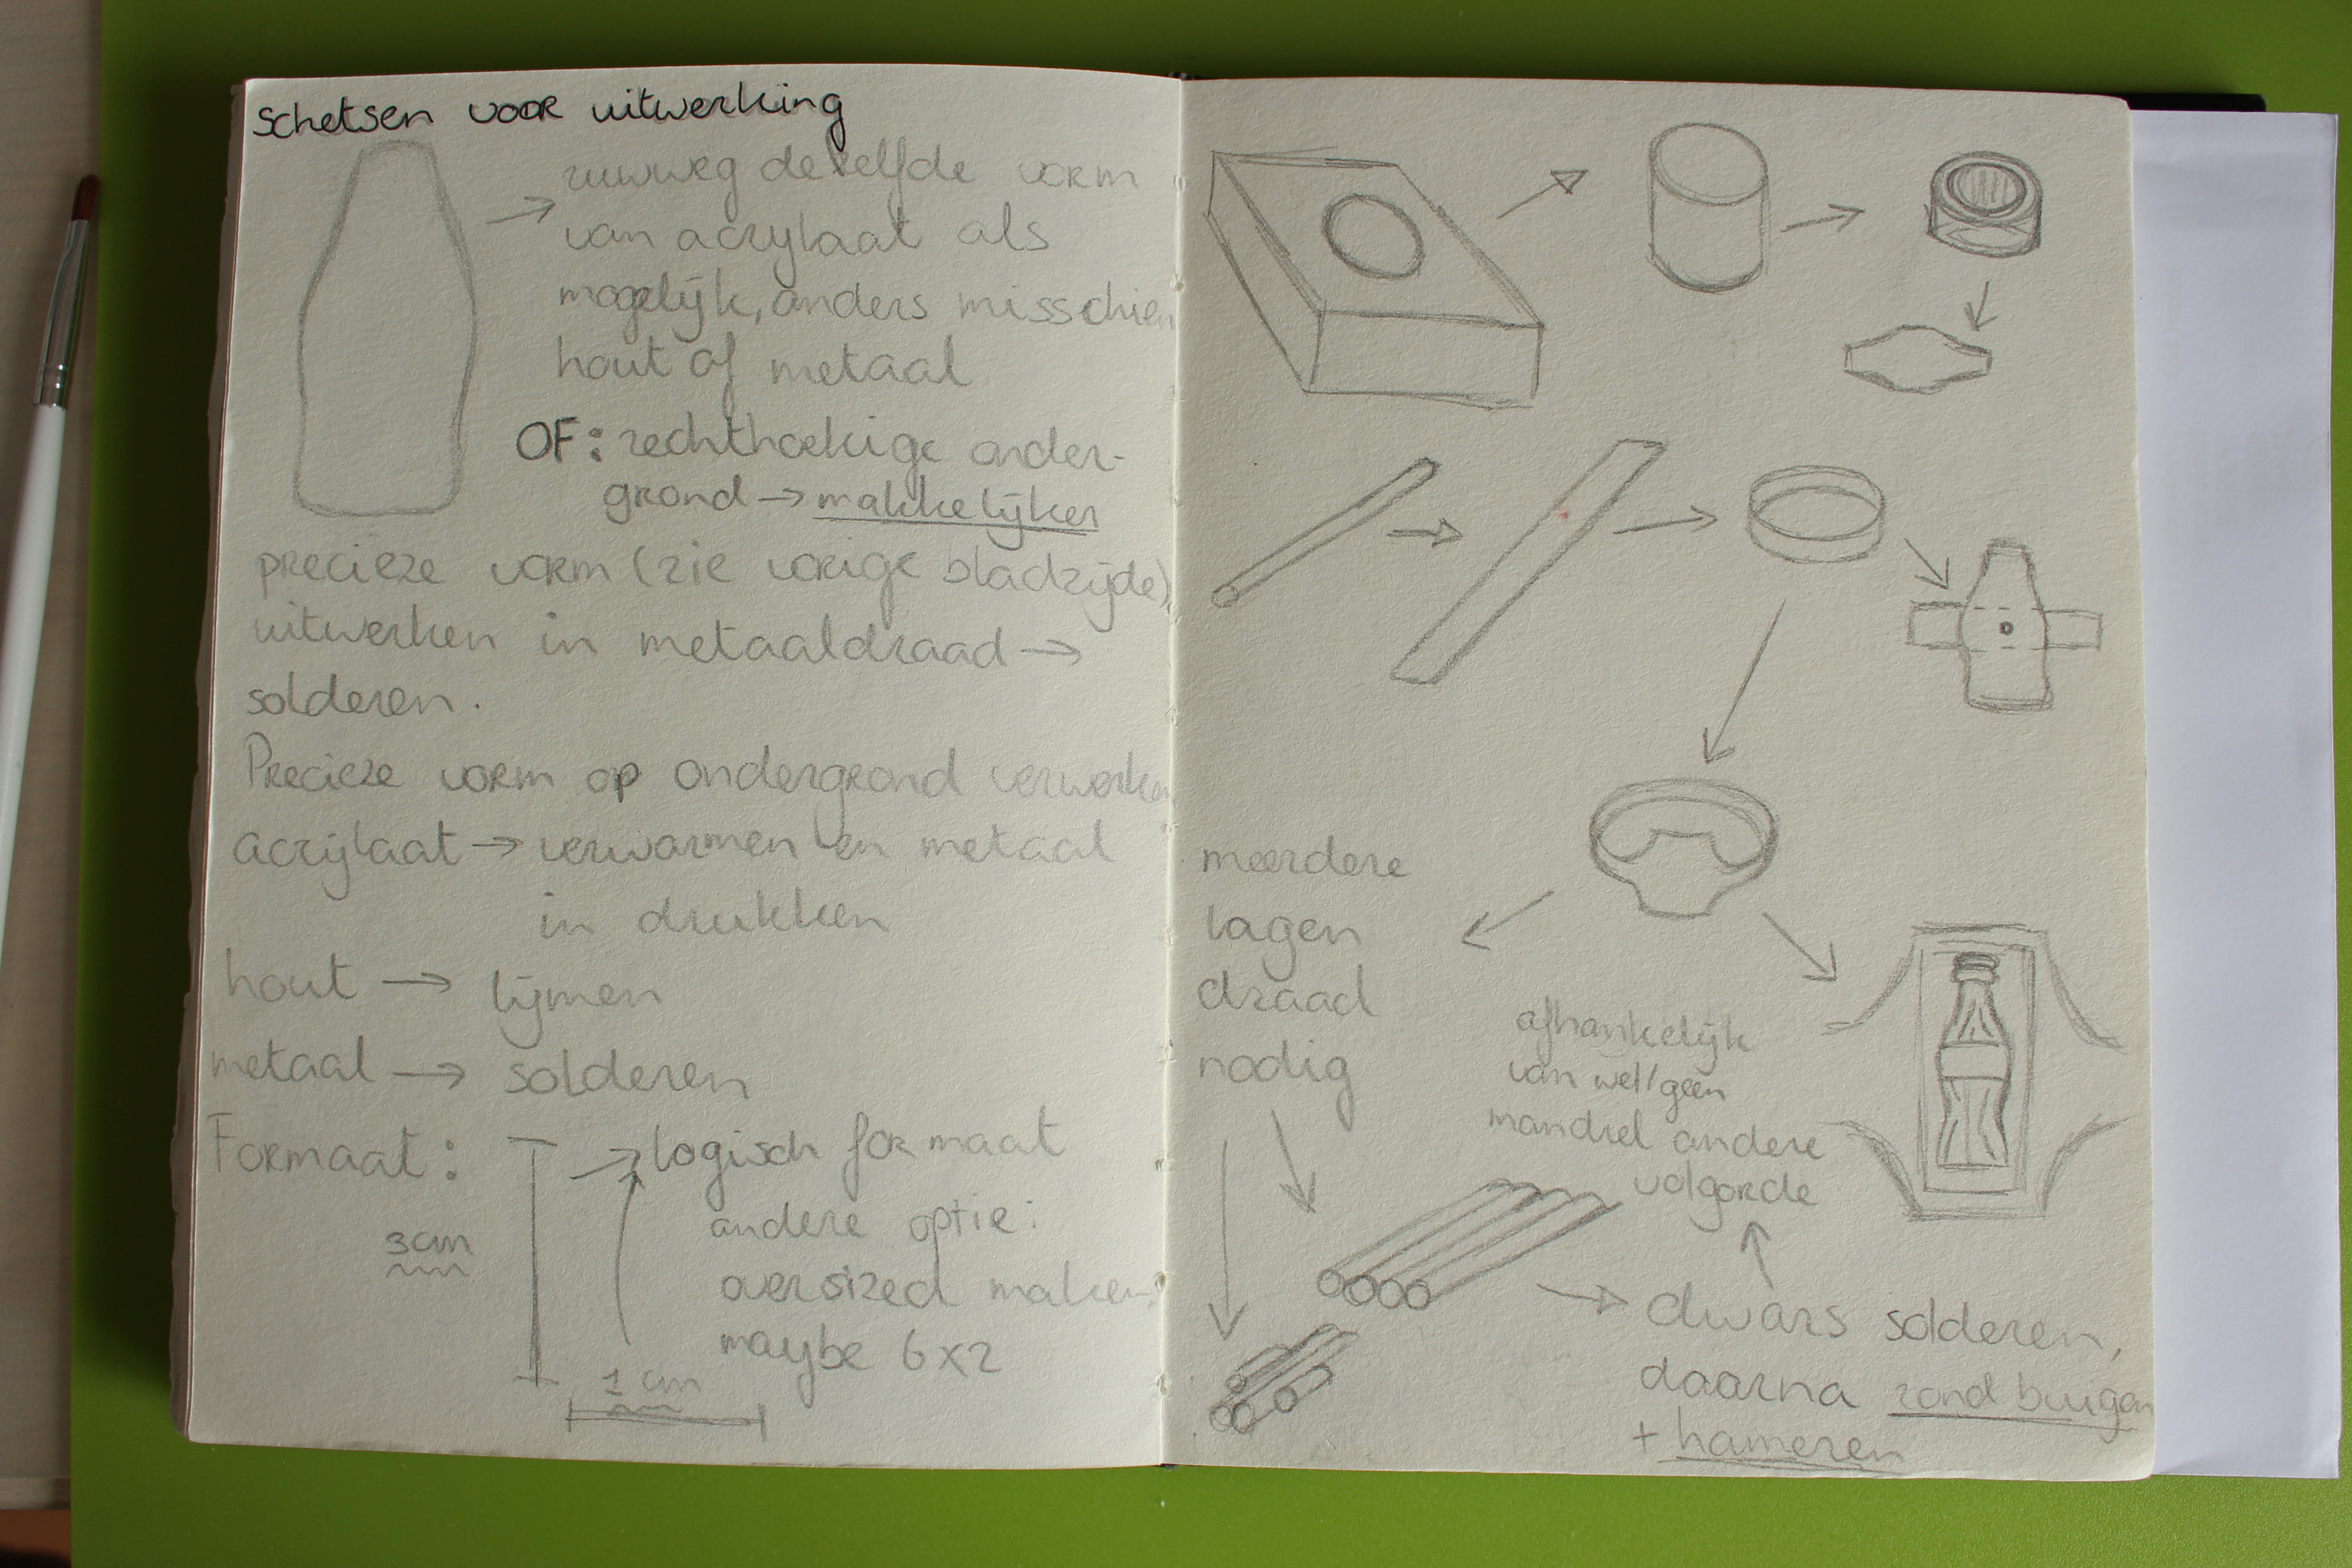 schetsen voor uitwerking
ruwweg dezelfde vorm
van acrylaat als
mogelijk, anders misschien
hout of metaal
OF: rechthoekige onder-
grond → makkelijker
precieze vorm (zie vorige bladzijde)
uitwerken in metaaldraad →
solderen.
Precieze vorm op ondergrond verwerken
acrylaat → verwarmen en metaal
in drukken
hout → lijmen
metaal → solderen
Formaat: → logisch formaat
andere optie:
3cm
oversized maken:
maybe 6x2
1 cm
meerdere
lagen
draad
nodig
afhankelijk
van wel/geen
mandrel andere
volgorde
dwars solderen,
daarna rond buigen
+ hameren